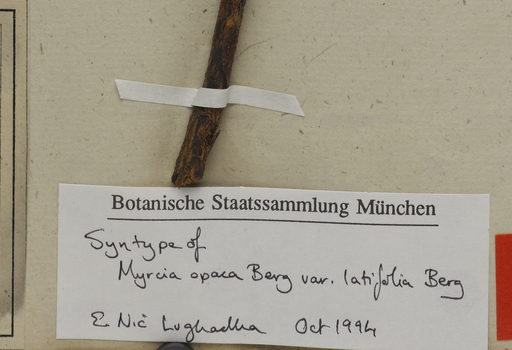 Botanische Staatssammlung München
Syntype of
Myrcia opaca Berg var. latifolia Berg
E. Nic Lughadha Oct 1994